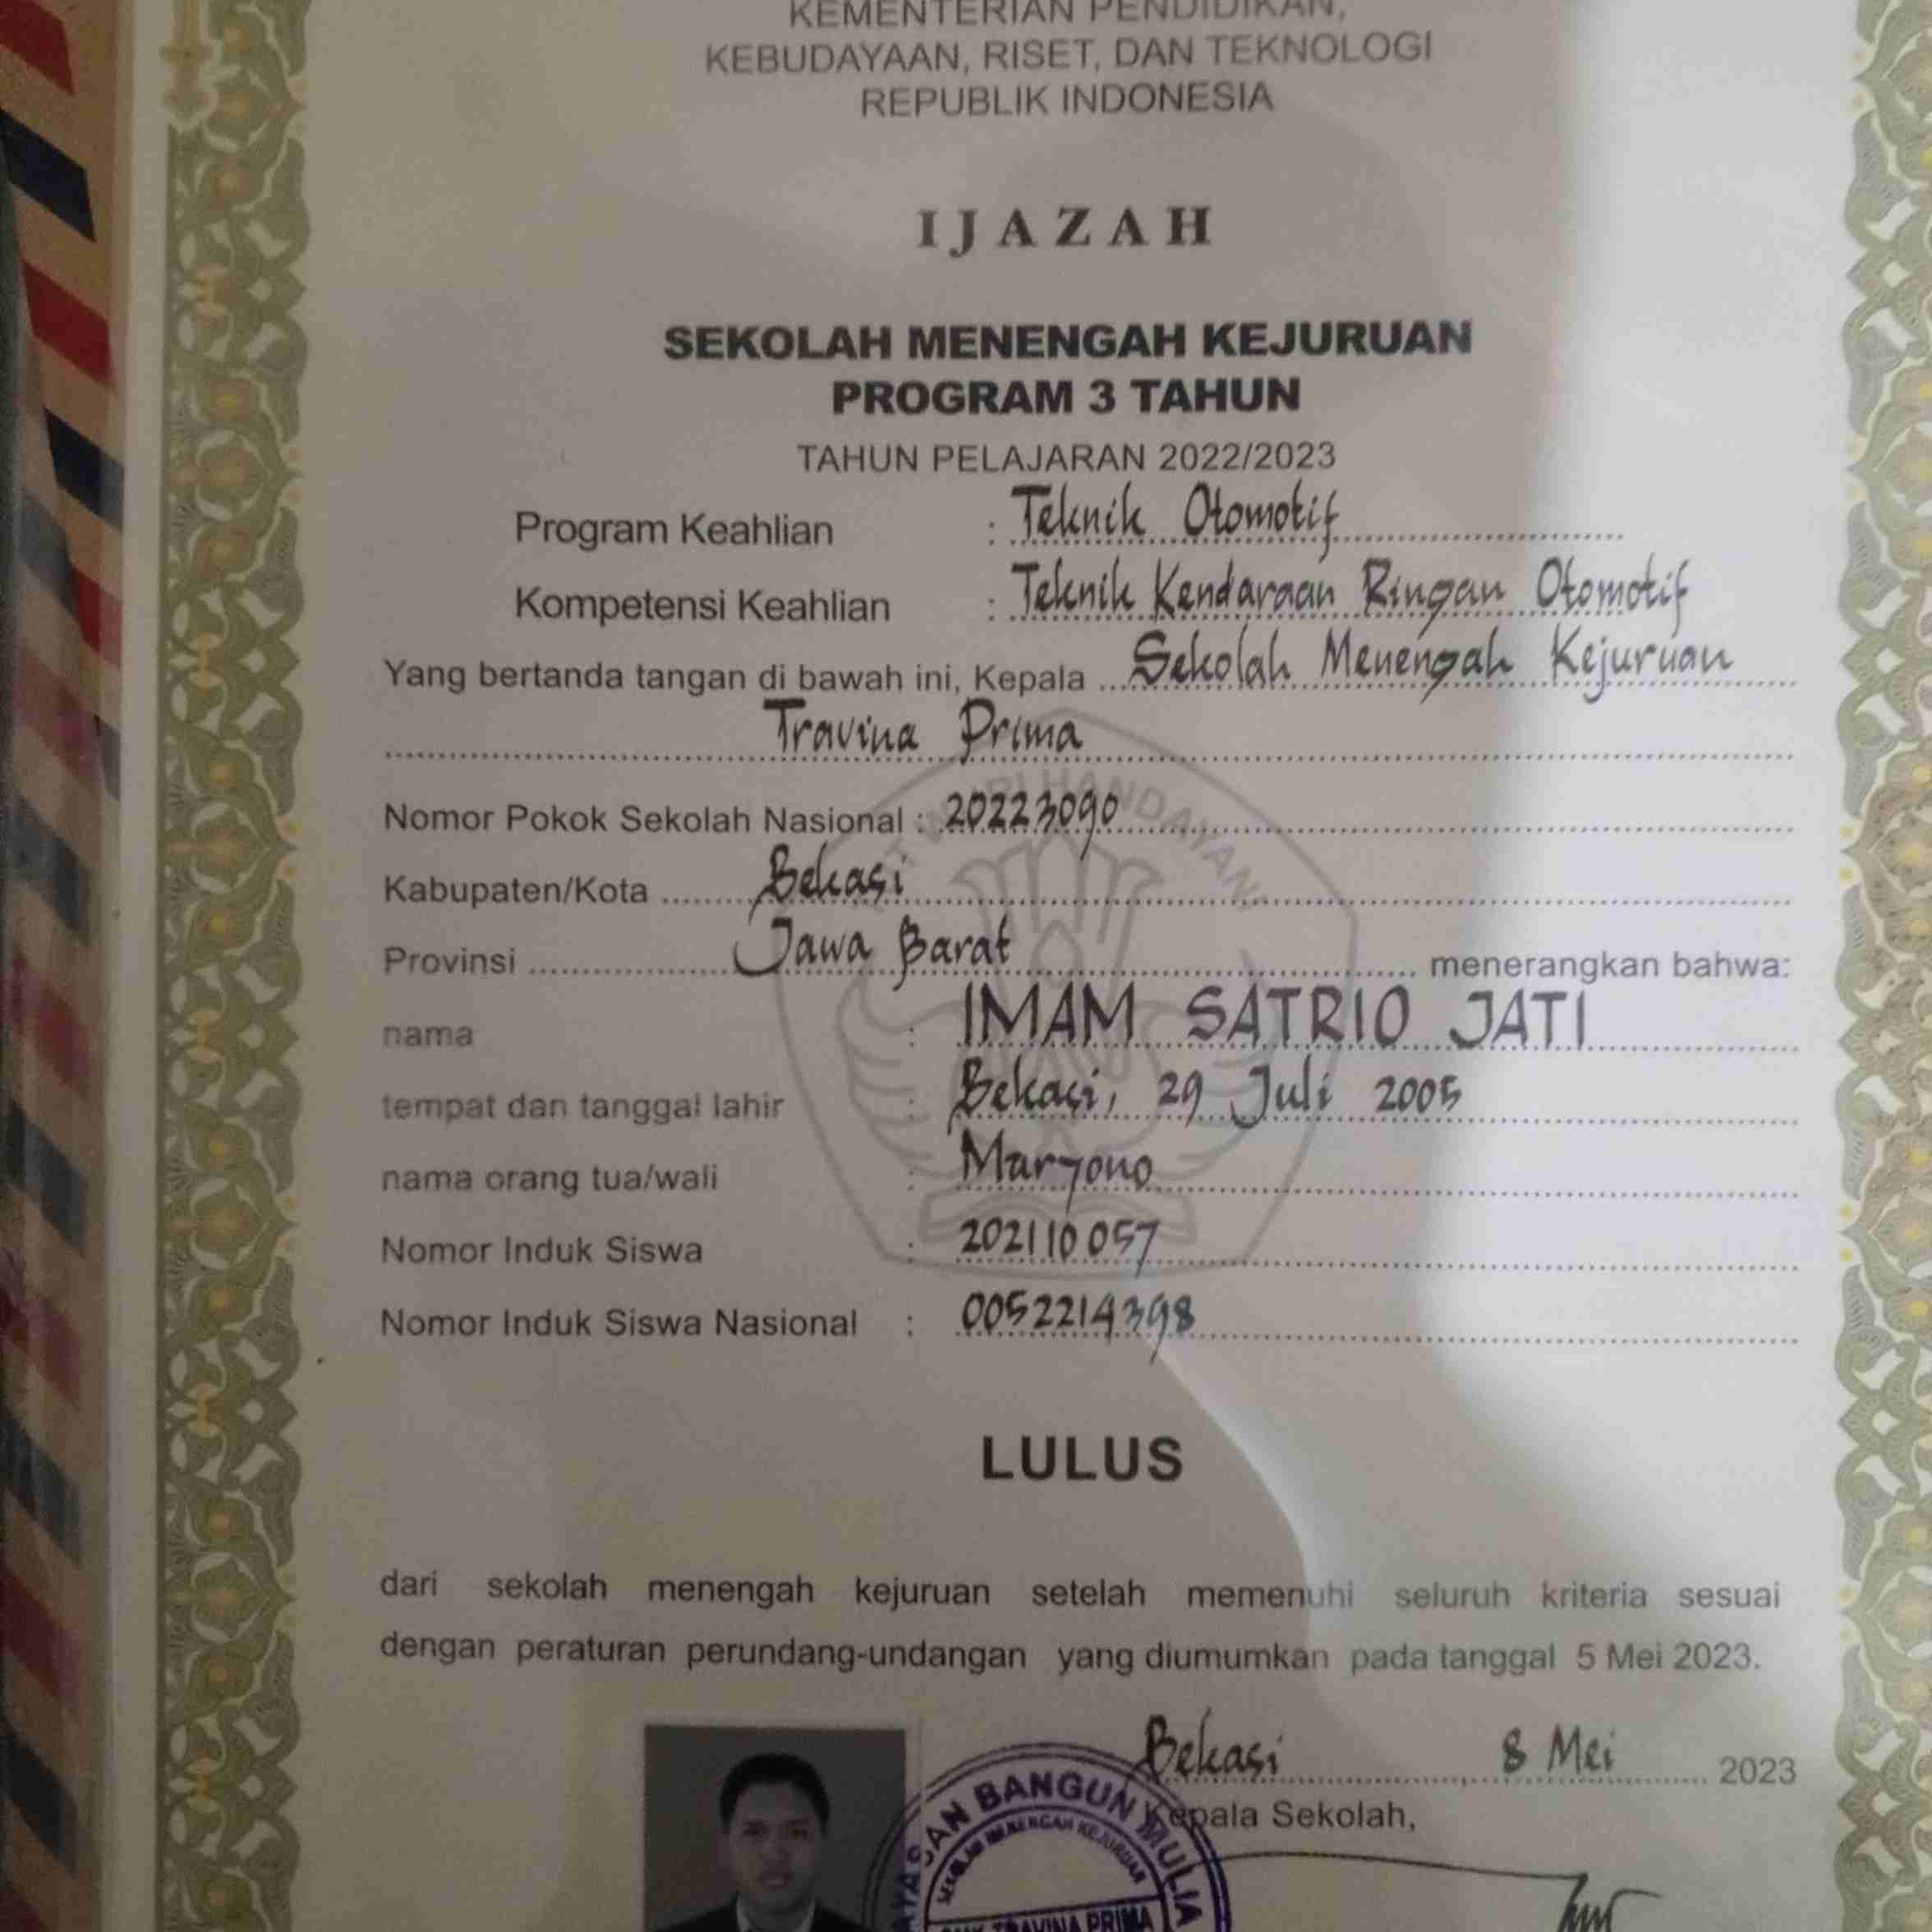 KEMENTERIAN PENDIDIKAN,
KEBUDAYAAN, RISET, DAN TEKNOLOGI
REPUBLIK INDONESIA
IJAZAH
SEKOLAH MENENGAH KEJURUAN
PROGRAM 3 TAHUN
TAHUN PELAJARAN 2022/2023
Program Keahlian : Teknik Otomotif
Kompetensi Keahlian : Teknik Kendaraan Ringan Otomotif
Yang bertanda tangan di bawah ini, Kepala Sekolah Menengah Kejuruan
Travina Prima
Nomor Pokok Sekolah Nasional : 20223090
Kabupaten/Kota Bekasi
Provinsi Jawa Barat menerangkan bahwa:
nama : IMAM SATRIO JATI
tempat dan tanggal lahir : Bekasi, 29 Juli 2005
nama orang tua/wali : Maryono
Nomor Induk Siswa : 202110057
Nomor Induk Siswa Nasional : 0052214398
LULUS
dari sekolah menengah kejuruan setelah memenuhi seluruh kriteria sesuai
dengan peraturan perundang-undangan yang diumumkan pada tanggal 5 Mei 2023.
Bekasi 8 Mei 2023
Kepala Sekolah,
YAYASAN BANGUN MULIA
SEKOLAH MENENGAH KEJURUAN
SMK TRAVINA PRIMA